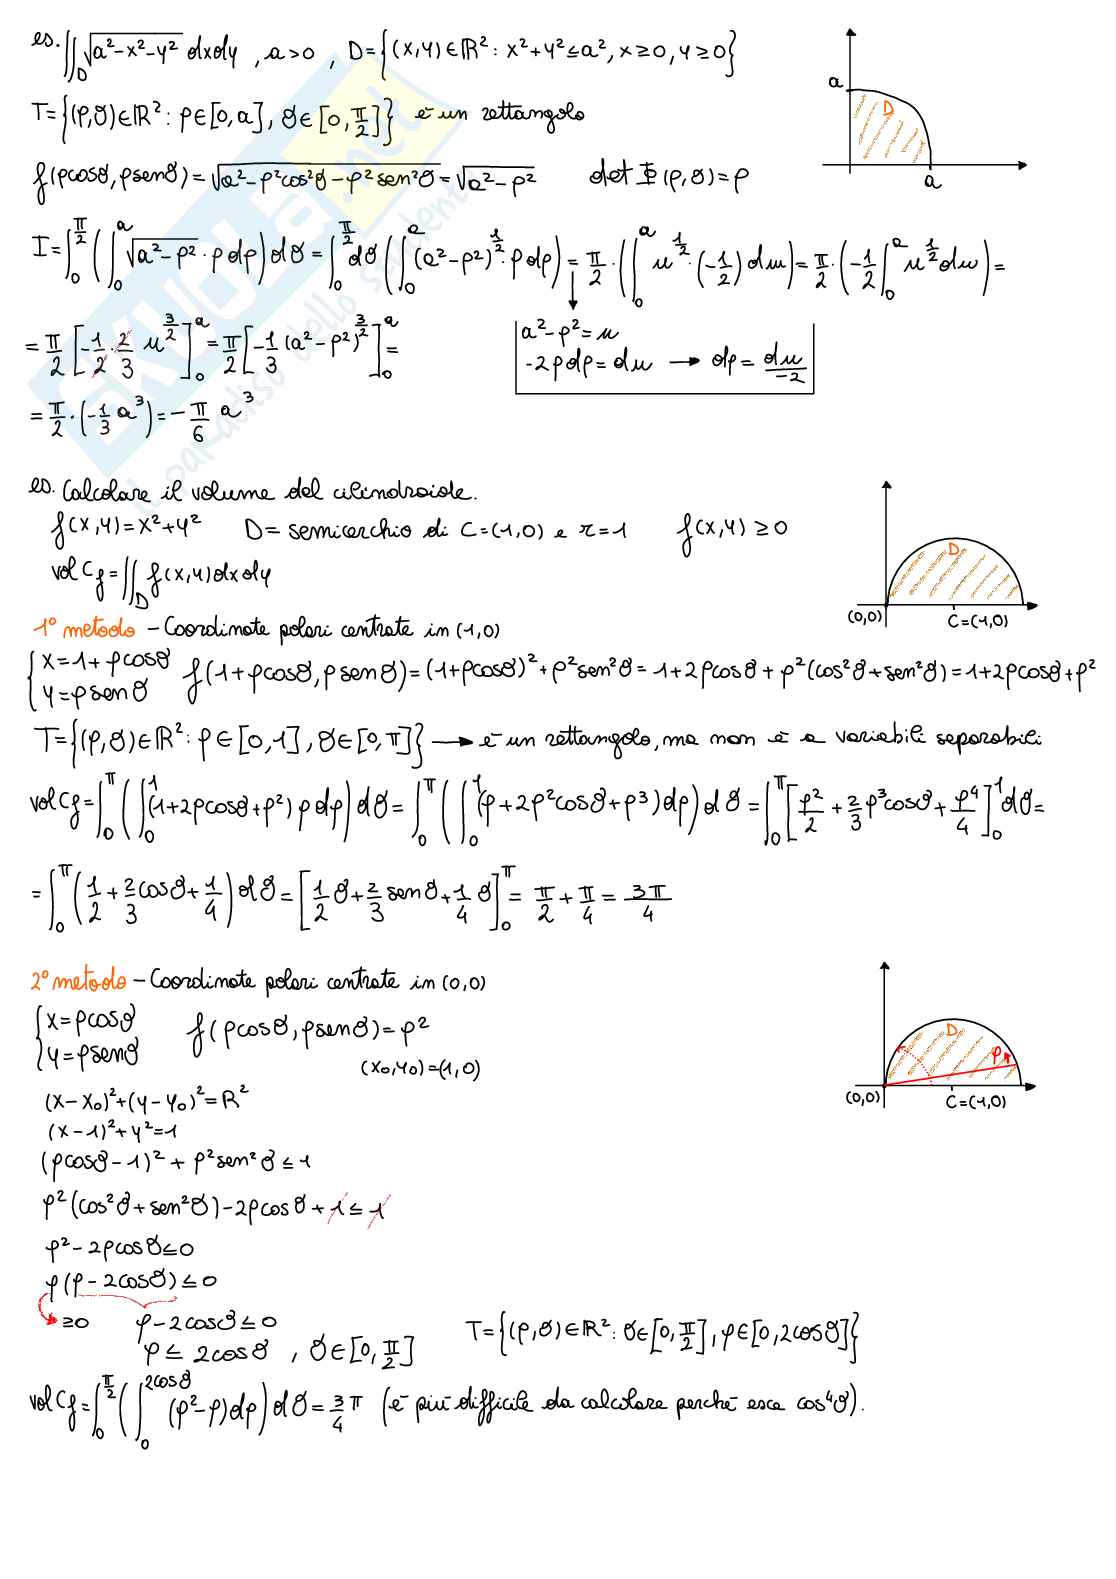 es. ∬_D √(a²-x²-y²) dxdy , a>0 , D={(x,y)∈ℝ²: x²+y²≤a², x≥0, y≥0}
a
D
a
T={(ρ,θ)∈ℝ²: ρ∈[0,a], θ∈[0,π/2]} è un rettangolo
f(ρcosθ, ρsenθ)=√(a²-ρ²cos²θ-ρ²sen²θ)=√(a²-ρ²) det Φ(ρ,θ)=ρ
I=∫_0^{π/2}(∫_0^a √(a²-ρ²)·ρdρ)dθ=∫_0^{π/2}dθ(∫_0^a (a²-ρ²)^{1/2}·ρdρ)=π/2·(∫_0^a u^{1/2}·(-1/2)du)=π/2·(-1/2∫_0^a u^{1/2}du)=
=π/2[-1/2·2/3 u^{3/2}]_0^a=π/2[-1/3(a²-ρ²)^{3/2}]_0^a=
a²-ρ²=u
-2ρdρ=du → dρ=du/-2
=π/2·(-1/3 a³)=-π/6 a³
es. Calcolare il volume del cilindroide.
f(x,y)=x²+y² D= semicerchio di C=(1,0) e r=1 f(x,y)≥0
D
(0,0) C=(1,0)
vol Cf=∬_D f(x,y)dxdy
1° metodo - Coordinate polari centrate in (1,0)
{x=1+ρcosθ
y=ρsenθ f(1+ρcosθ, ρsenθ)=(1+ρcosθ)²+ρ²sen²θ=1+2ρcosθ+ρ²(cos²θ+sen²θ)=1+2ρcosθ+ρ²
T={(ρ,θ)∈ℝ²: ρ∈[0,1], θ∈[0,π]} → è un rettangolo, ma non è a variabili separabili
vol Cf=∫_0^π(∫_0^1(1+2ρcosθ+ρ²)ρdρ)dθ=∫_0^π(∫_0^1(ρ+2ρ²cosθ+ρ³)dρ)dθ=∫_0^π[ρ²/2+2/3ρ³cosθ+ρ⁴/4]_0^1dθ=
=∫_0^π(1/2+2/3cosθ+1/4)dθ=[1/2θ+2/3senθ+1/4θ]_0^π=π/2+π/4=3π/4
2° metodo - Coordinate polari centrate in (0,0)
{x=ρcosθ
y=ρsenθ f(ρcosθ, ρsenθ)=ρ²
D
ρ
(0,0) C=(1,0)
(x₀,y₀)=(1,0)
(x-x₀)²+(y-y₀)²=R²
(x-1)²+y²=1
(ρcosθ-1)²+ρ²sen²θ≤1
ρ²(cos²θ+sen²θ)-2ρcosθ+1≤1
ρ²-2ρcosθ≤0
ρ(ρ-2cosθ)≤0
≥0 ρ-2cosθ≤0
ρ≤2cosθ , θ∈[0,π/2] T={(ρ,θ)∈ℝ²: θ∈[0,π/2], ρ∈[0,2cosθ]}
vol Cf=∫_0^{π/2}(∫_0^{2cosθ}(ρ²-ρ)dρ)dθ=3/4π (è più difficile da calcolare perché esce cos⁴θ).
SKUOLA.net
il paradiso dello studente